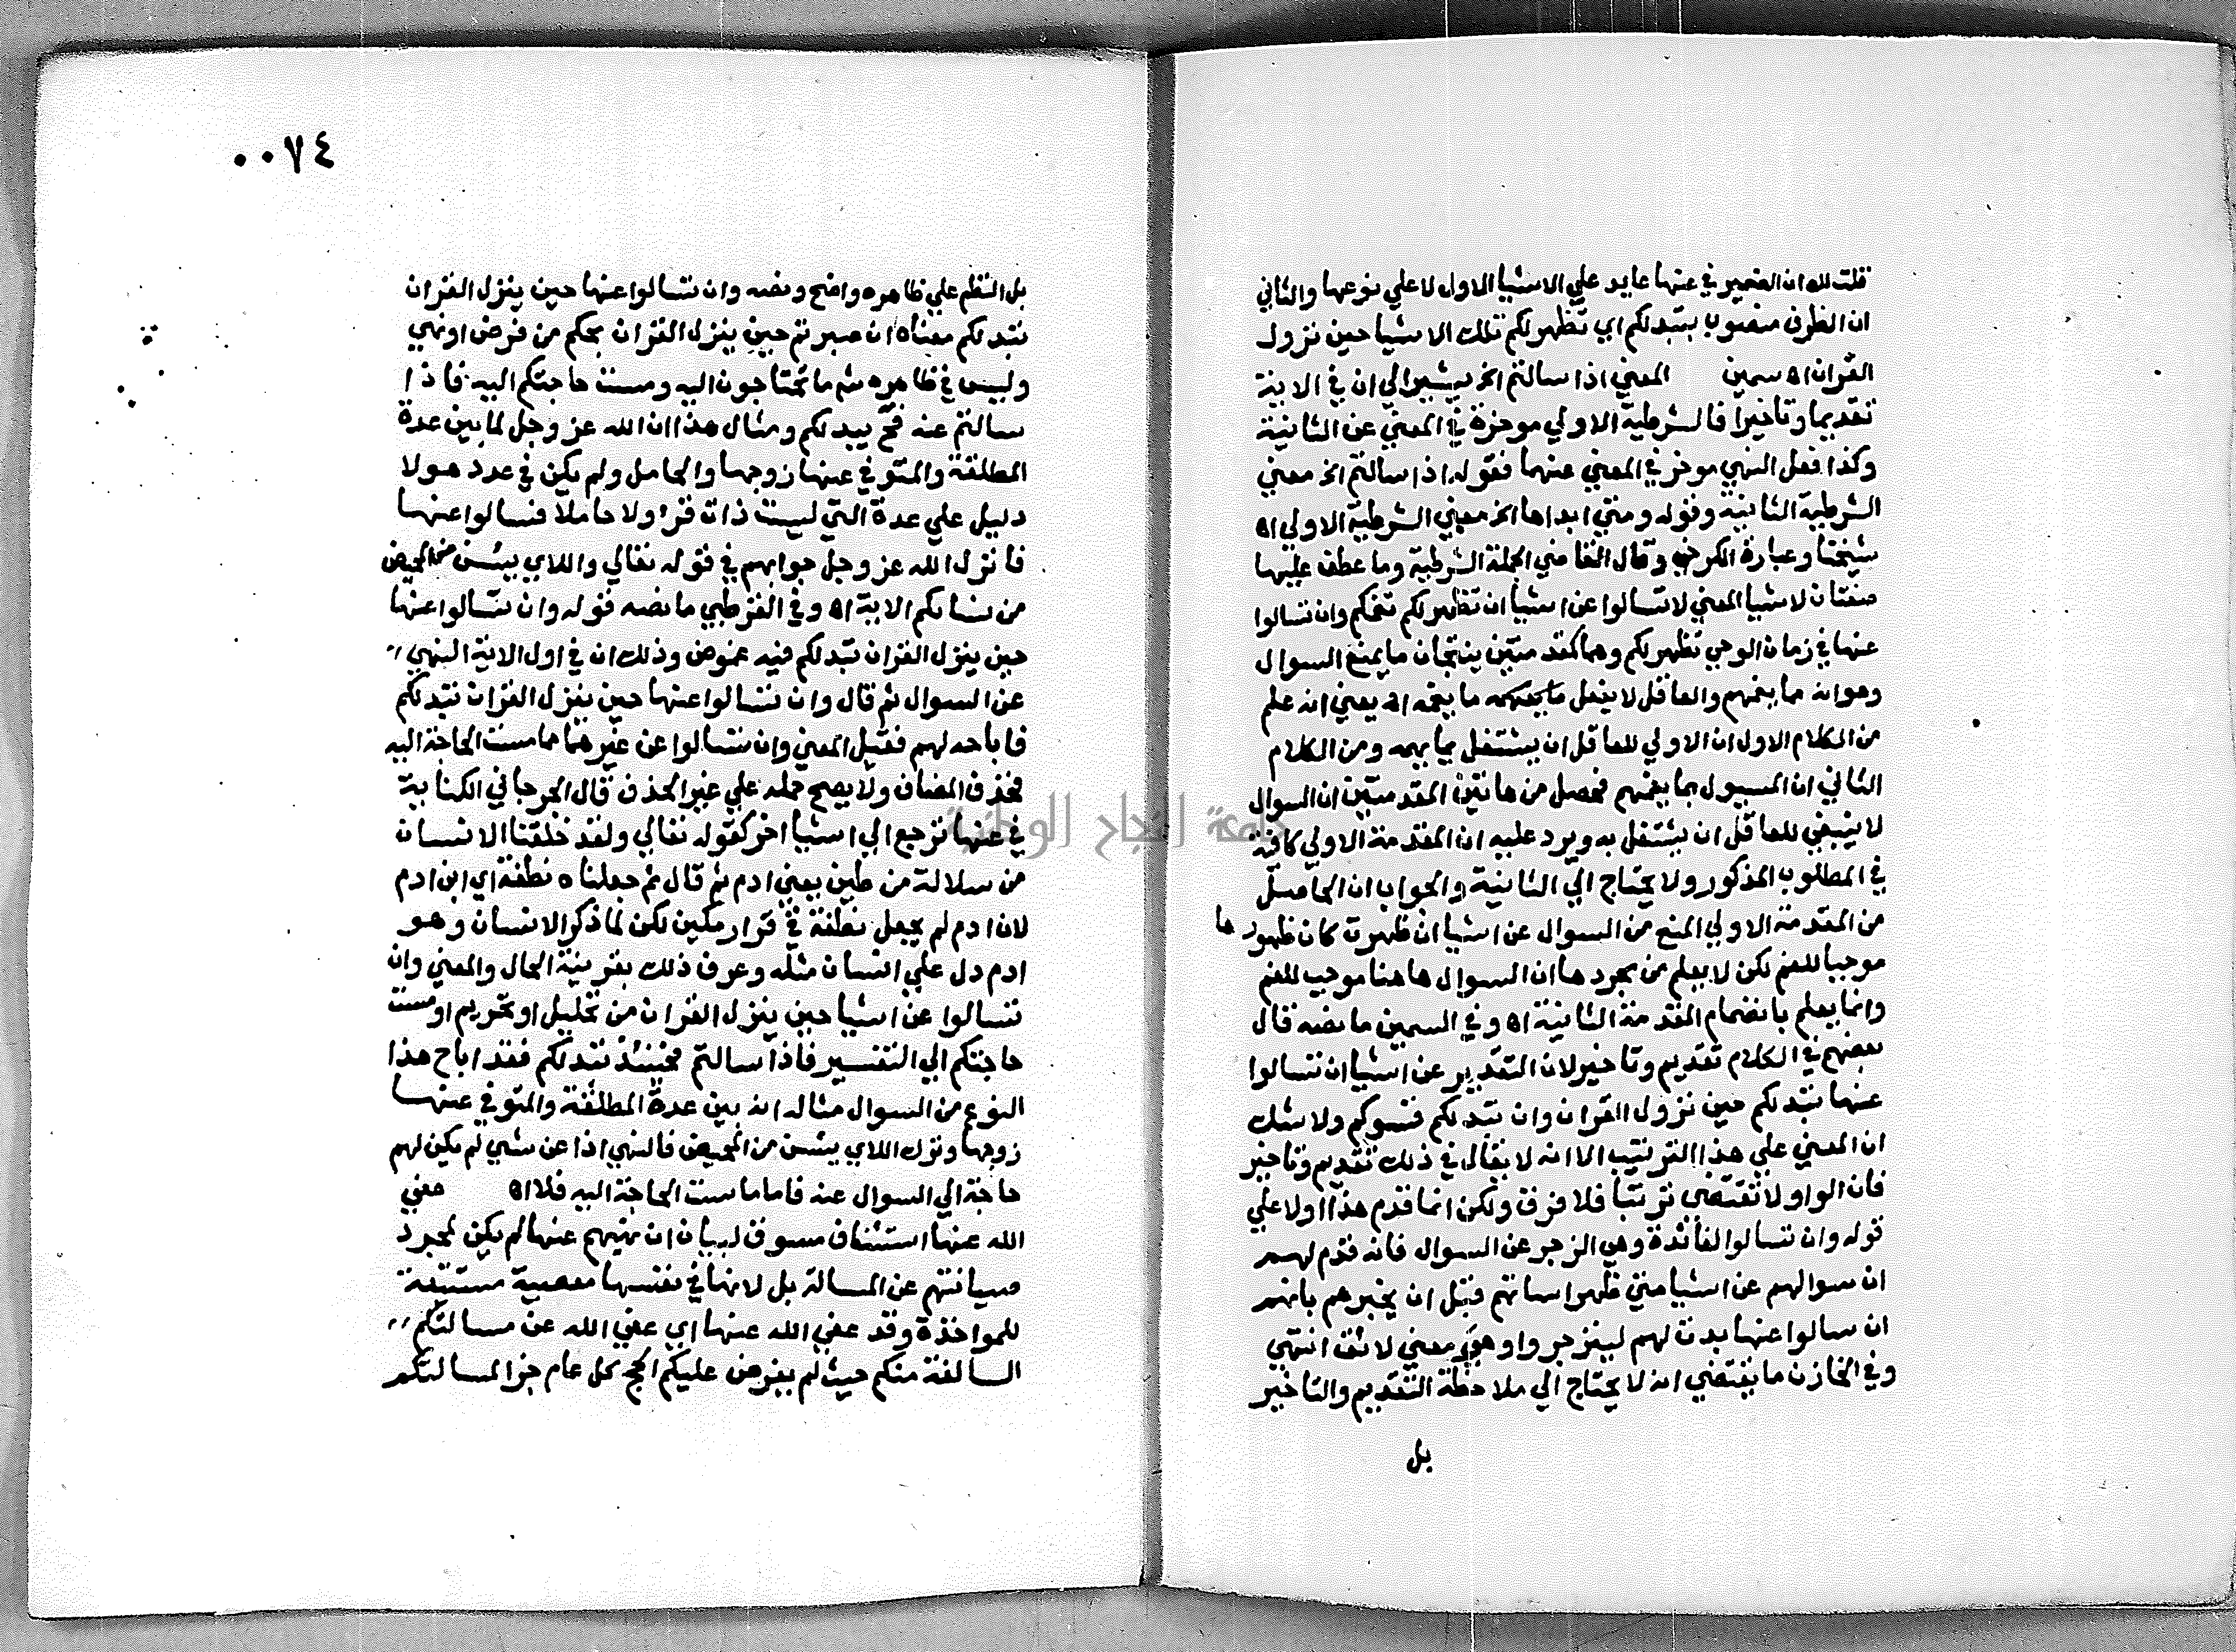 قلت لك ان الضمير في عنها عايد علي الاشيا الاول لا علي نوعها والثاني
ان الظرف منصوب بتبد لكم اي تظهر لكم تلك الاشيا حين نزول
القران اه سمين المعني اذا سالتم الخ يشير الي ان في الاية
تقديما وتاخيرا فالشرطية الاولي موخرة في المعني عن الثانية
وكذا فعل النهي موخر في المعني عنهما فقوله اذا سالتم الخ معني
الشرطية الثانية وقوله ومتي ابداها الخ معني الشرطية الاولي اه
شيخنا وعبارة الكرخي وقال القاضي الجملة الشرطية وما عطف عليها
صفتان لاشيا المعني لا تسالوا عن اشيا ان تظهر لكم تغمكم وان تسالوا
عنها في زمان الوحي تظهر لكم وهما كمقدمتين ينتجان ما يمنع السوال
وهو انه مما يغمهم والعاقل لا يفعل ما يغمه اه يعني انه علم
من الكلام الاول ان الاولي للعاقل ان يشتغل بما يهمه ومن الكلام
الثاني ان المسيول بما يغمهم فحصل من هاتين المقدمتين ان السوال
لا ينبغي للعاقل ان يشتغل به ويرد عليه ان المقدمة الاولي كافية
في المطلوب المذكور ولا يحتاج الي الثانية والجواب ان الحاصل
من المقدمة الاولي المنع من السوال عن اشيا ان ظهرت كان ظهورها
موجبا للغم لكن لا يعلم من مجردها ان السوال هاهنا موجب للغم
وانما يعلم بانضمام المقدمة الثانية اه وفي السمين ما نصه قال
بعضهم في الكلام تقديم وتاخير لان التقدير عن اشيا ان تسالوا
عنها تبد لكم حين نزول القران وان تبد لكم تسوكم ولا شك
ان المعني علي هذا الترتيب الا انه لا يقال في ذلك تقديم وتاخير
فان الواو لا تقتضي ترتيبا فلا فرق ولكن انما قدم هذا اولا علي
قوله وان تسالوا لفائدة وهي الزجر عن السوال فانه قدم لهم
ان سوالهم عن اشيا متي ظهرت اساتهم قبل ان يخبرهم بانهم
ان سالوا عنها بدت لهم لينزجروا وهو معني لائق انتهي
وفي الخازن ما يقتضي انه لا يحتاج الي ملاحظة التقديم والتاخير
بل
٠٠٧٤
بل النظم علي ظاهره واضح ونصه وان تسالوا عنها حين ينزل القران
تبد لكم معناه ان صبرتم حين ينزل القران بحكم من فرض او نهي
وليس في ظاهره شرح ما تحتاجون اليه ومست حاجتكم اليه فاذا
سالتم عنه فح يبد لكم ومثال هذا ان الله عز وجل لما بين عدة
المطلقة والمتوفي عنها زوجها والحامل ولم يكن في عدد هولا
دليل علي عدة التي ليست ذات قرء ولا حاملا فسالوا عنها
فانزل الله عز وجل جوابهم في قوله تعالي واللاي يئسن من المحيض
من نسائكم الاية اه وفي القرطبي ما نصه قوله وان تسالوا عنها
حين ينزل القران تبد لكم فيه غموض وذلك ان في اول الاية النهي
عن السوال ثم قال وان تسالوا عنها حين ينزل القران تبد لكم
فاباحه لهم فقيل المعني وان تسالوا عن غيرها مما مست الحاجة اليه
فحذف المضاف ولا يصح حمله علي غير الحذف قال الجرجاني الكناية
في عنها ترجع الي اشيا اخر كقوله تعالي ولقد خلقنا الانسان
من سلالة من طين يعني ادم ثم قال ثم جعلناه نطفة اي ابن ادم
لان ادم لم يجعل نطفة في قرار مكين لكن لما ذكر الانسان وهو
ادم دل علي انسان مثله وعرف ذلك بقرينة الحال والمعني وان
تسالوا عن اشيا حين ينزل القران من تحليل او تحريم او مست
حاجتكم الي التفسير فاذا سالتم فحينئذ تبد لكم فقد اباح هذا
النوع من السوال مثاله انه بين عدة المطلقة والمتوفي عنها
زوجها ونزل اللاي يئسن من المحيض فالنهي اذا عن شي لم يكن لهم
حاجة الي السوال عنه فاما ما مست الحاجة اليه فلا اه عفي
الله عنها استئناف مسوق لبيان ان نهيهم عنها لم يكن لمجرد
صيانتهم عن المسالة بل لانها في نفسها معصية مستتبعة
للمواخذة وقد عفي الله عنها اي عفي الله عن مسالتكم
السالفة منكم حيث لم يفرض عليكم الحج كل عام جزا لمسالتكم
جامعة النجاح الوطنية